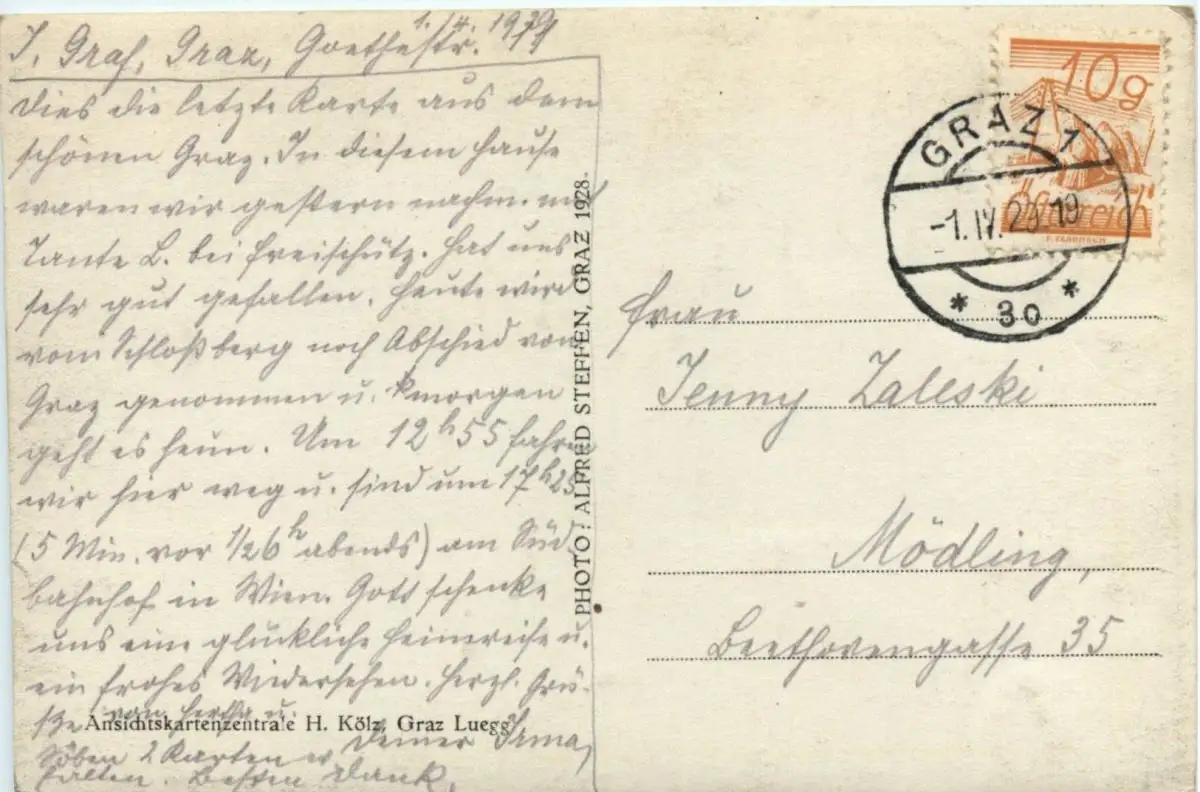 1./4. 1929
I. Graf, Graz, Goethestr.
Dies die letzte Karte aus dem
schönen Graz. In diesem Hause
waren wir gestern nachm. mit
Tante L. bei Freischütz. Hat uns
sehr gut gefallen. Heute wird
vom Schloßberg noch Abschied von
Graz genommen u. morgen
geht es heim. Um 12h55 fahren
wir hier weg u. sind um 17h25
(5 Min. vor 1/26h abends) am Süd
bahnhof in Wien. Gott schenke
uns eine glückliche Heimreise u.
ein frohes Wiedersehen. Herzl. Grü-
ße von Hertha u.
Deiner Irma,
Soben 2 Karten er
halten. Besten Dank.
Ansichtskartenzentrale H. Kölz, Graz Luegg
PHOTO: ALFRED STEFFEN, GRAZ 1928.
10g
Österreich
GRAZ 1
-1.IV.29 19
* 30 *
Frau
Jenny Zaleski
Mödling,
Beethovengasse 35